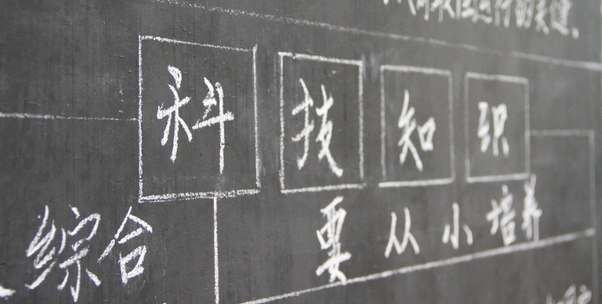 运行的关键,
科技知识
要从小培养
综合